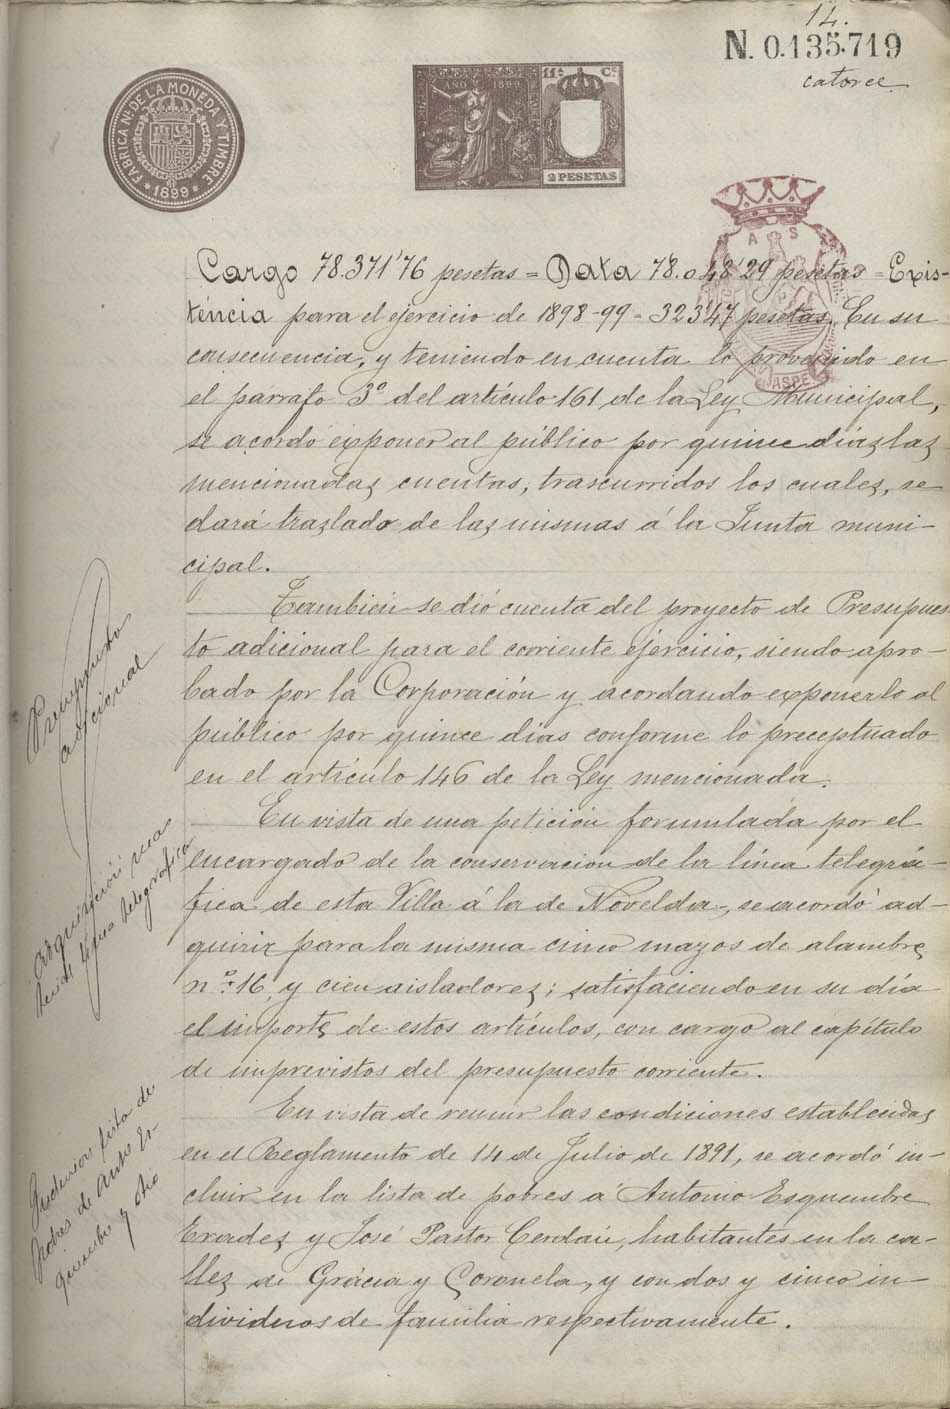 14.
N. 0.135.719
catorce
FABRICA NL. DE LA MONEDA Y TIMBRE
* 1899 *
AÑO 1899
11ª Cᵉ
2 PESETAS
A S
JASPE
Cargo 78.371'76 pesetas = Data 78.048'29 pesetas = Exis-
tencia para el ejercicio de 1898-99 = 323'47 pesetas. En su
consecuencia, y teniendo en cuenta lo prevenido en
el párrafo 3º del artículo 161 de la Ley Municipal,
se acordó exponer al público por quince días las
mencionadas cuentas, trascurridos los cuales, se
dará traslado de las mismas á la Junta muni-
cipal.
Presupuesto
adicional
También se dió cuenta del proyecto de Presupues
to adicional para el corriente ejercicio, siendo apro-
bado por la Corporación y acordando exponerlo al
público por quince días conforme lo preceptuado
en el artículo 146 de la Ley mencionada.
Adquisición
línea telegráfica
En vista de una petición formulada por el
encargado de la conservación de la línea telegrá-
fica de esta Villa á la de Novelda, se acordó ad-
quirir para la misma cinco mazos de alambre
nº 16, y cien aisladores; satisfaciendo en su día
el importe de estos artículos, con cargo al capítulo
de imprevistos del presupuesto corriente.
Inclusión lista de
pobres de Antº Es-
quembre y otro
En vista de reunir las condiciones establecidas
en el Reglamento de 14 de Julio de 1891, se acordó in-
cluir en la lista de pobres á Antonio Esquembre
Erades y José Pastor Cerdán, habitantes en la ca-
lles de Grácia y Coronela, y con dos y cinco in-
dividuos de familia respectivamente.